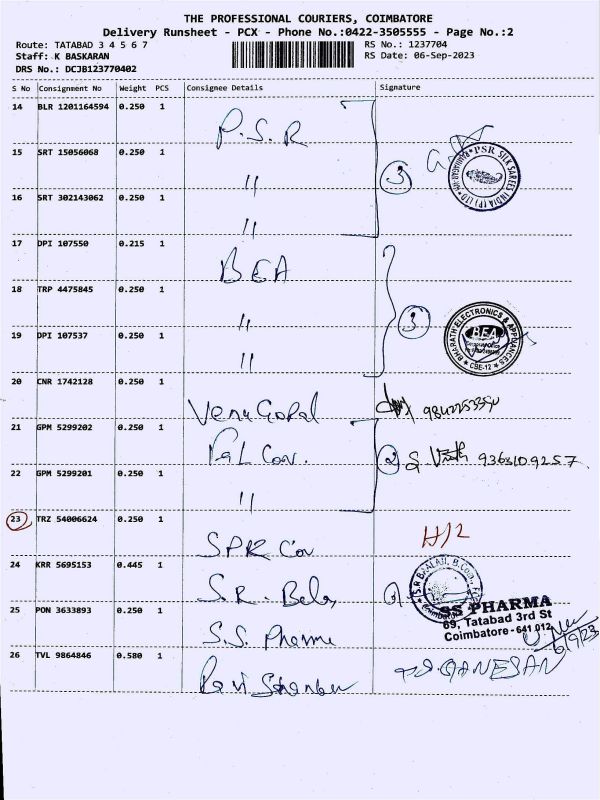 THE PROFESSIONAL COURIERS, COIMBATORE
Delivery Runsheet - PCX - Phone No.:0422-3505555 - Page No.:2
Route: TATABAD 3 4 5 6 7
RS No.: 1237704
Staff: K BASKARAN
RS Date: 06-Sep-2023
DRS No.: DCJB123770402
S No Consignment No Weight PCS Consignee Details Signature
14 BLR 1201164594 0.250 1 P.S.R
15 SRT 15056068 0.250 1 "
3
PSR SILK SAREES INDIA (P) LTD
16 SRT 302143062 0.250 1 "
17 DPI 107550 0.215 1 BEA
18 TRP 4475845 0.250 1 "
3
BHARATH ELECTRONICS & APPLIANCES
BEA
CBE-12
19 DPI 107537 0.250 1 "
20 CNR 1742128 0.250 1 Venu Gopal
21 GPM 5299202 0.250 1 Pal Con.
2 9363109257
22 GPM 5299201 0.250 1 "
23 TRZ 54006624 0.250 1 SPR Con
H/2
24 KRR 5695153 0.445 1 S.R. Bala
S.R BAALAJI, B.Com.,
Coimbatore
25 PON 3633893 0.250 1 S.S. Pharma
SS PHARMA
69, Tatabad 3rd St
Coimbatore - 641 012
6/9/23
26 TVL 9864846 0.580 1 Ravi Shankar
GANESAN